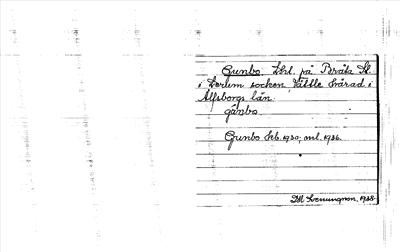 Gunbo. Lht. på Bråta St.
i Lerum socken Vättle härad i
Älfsborgs län.
gånbo.
Gunbo hb. 1930, ml. 1936.
DM Svenungson. 1938.